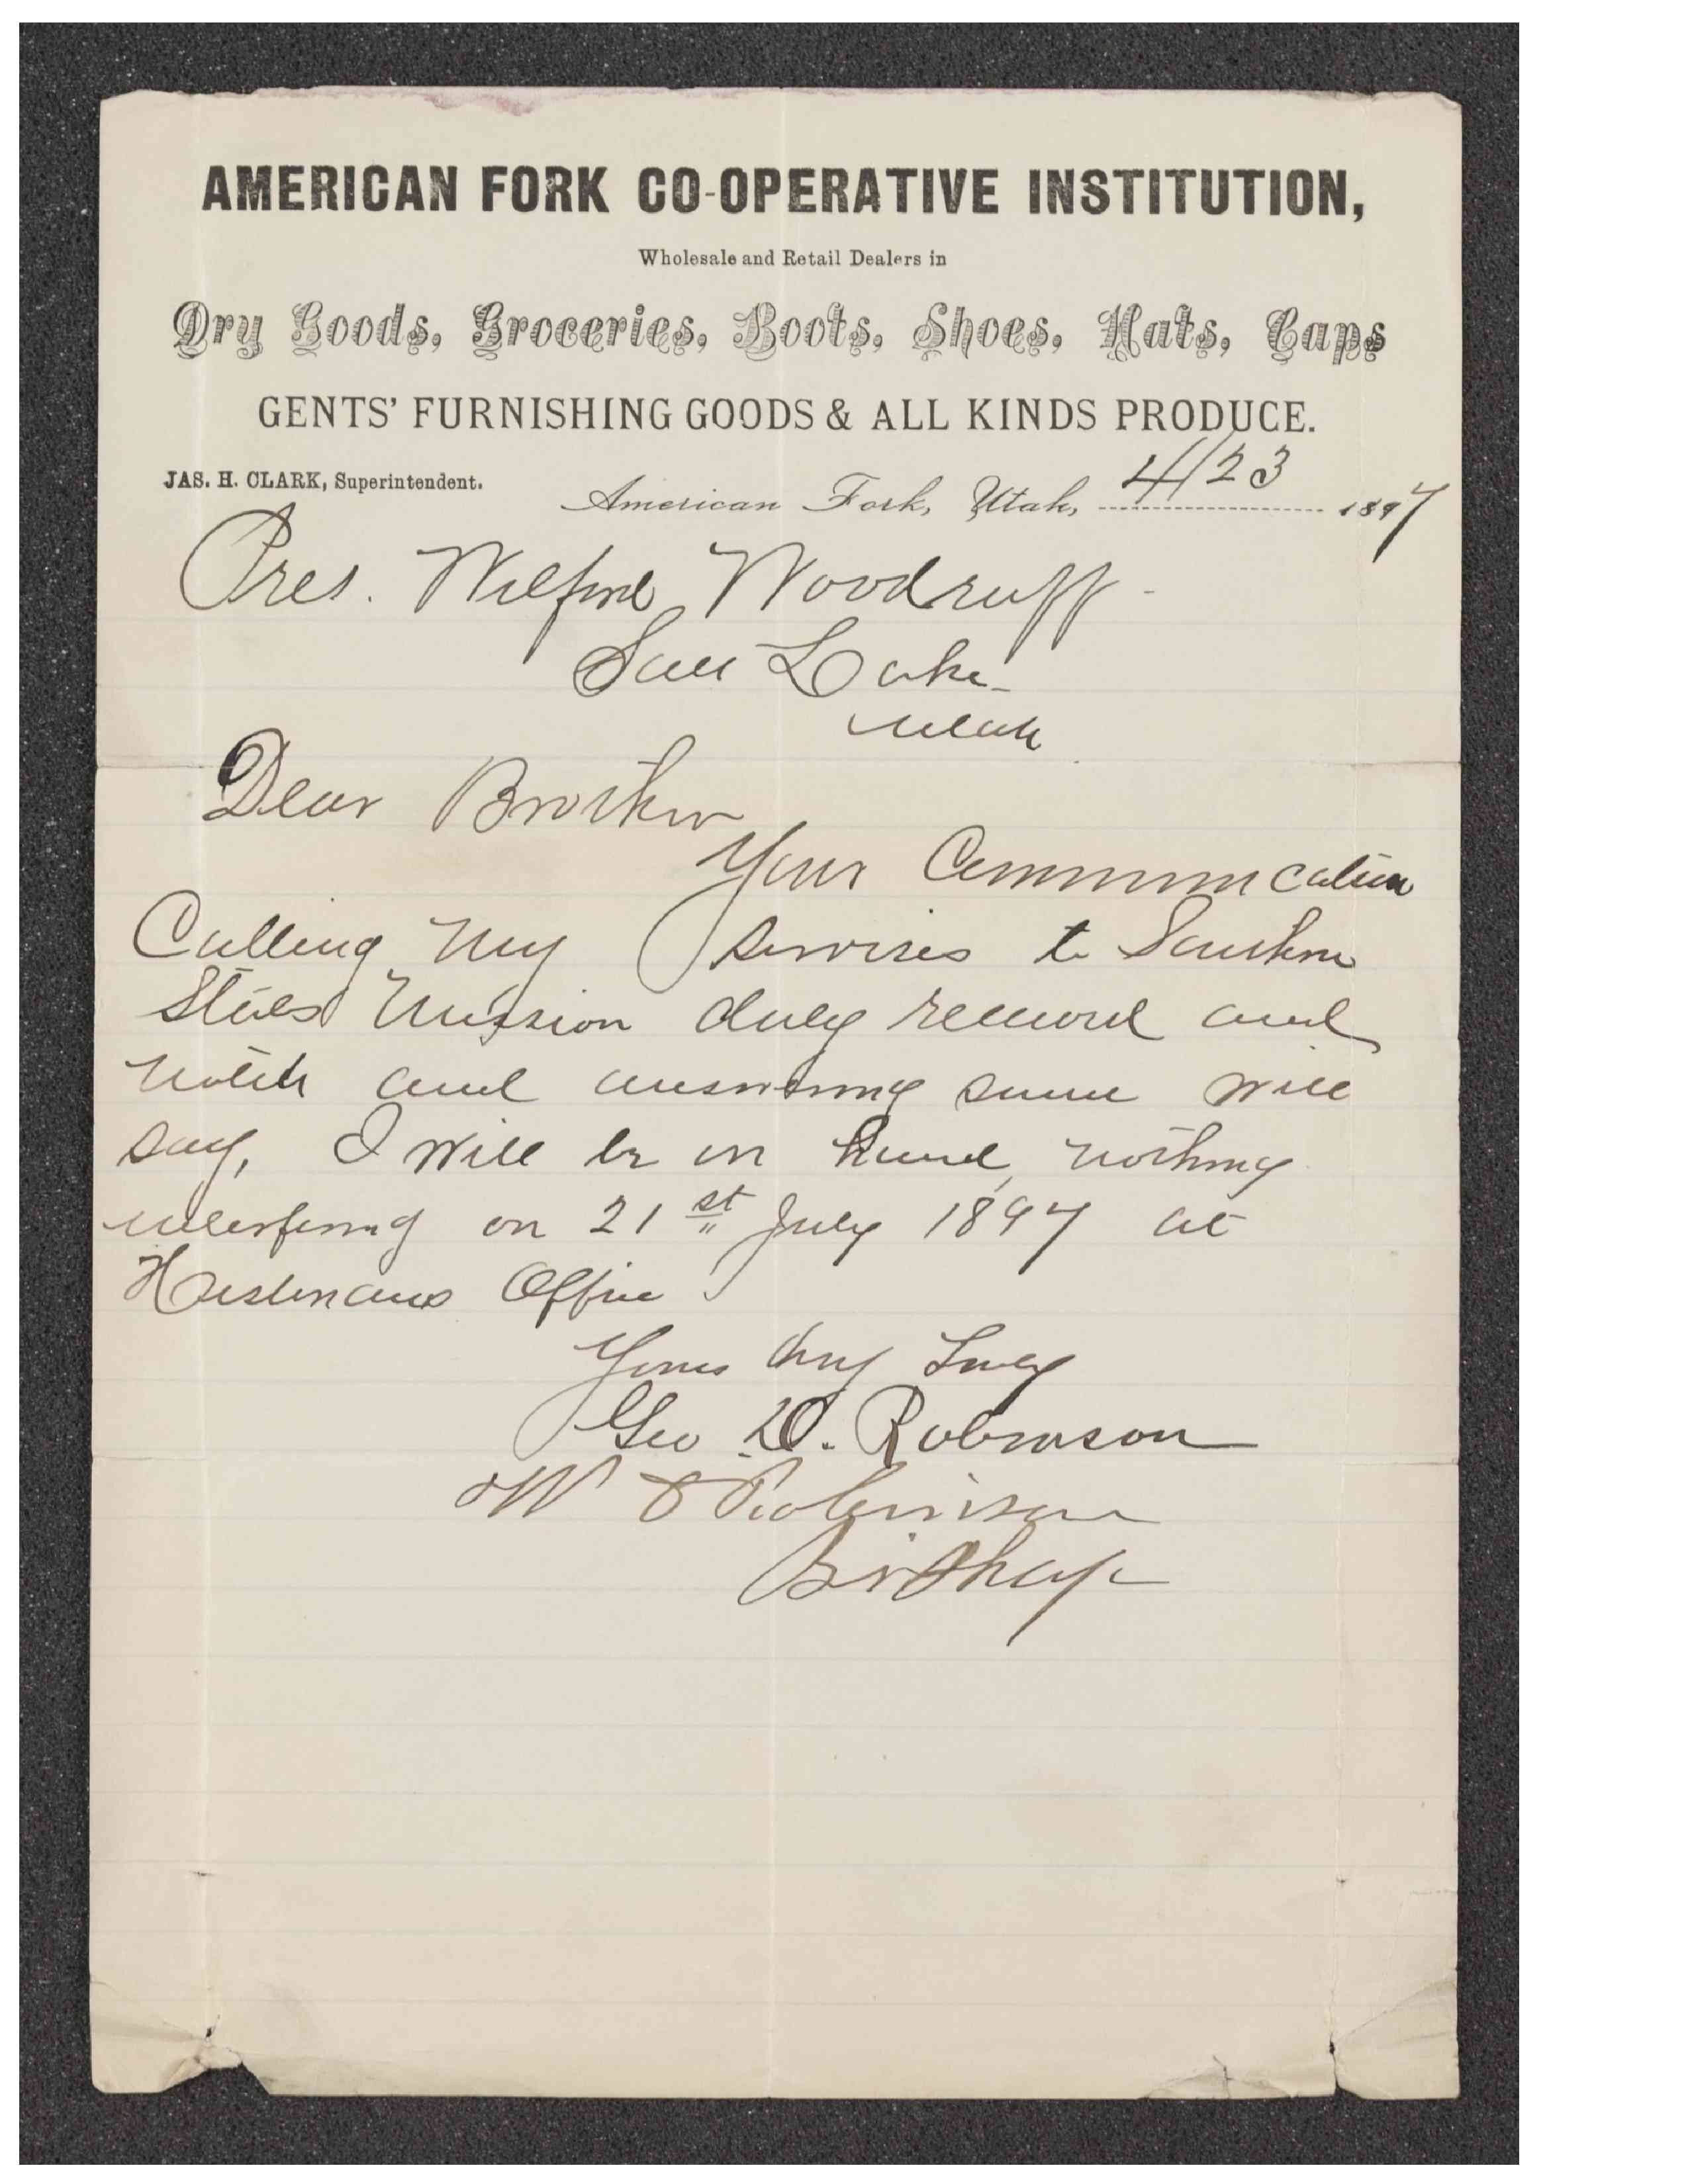 AMERICAN FORK CO-OPERATIVE INSTITUTION,
Wholesale and Retail Dealers in
Dry Goods, Groceries, Boots, Shoes, Hats, Caps
GENTS' FURNISHING GOODS & ALL KINDS PRODUCE.
JAS. H. CLARK, Superintendent.
American Fork, Utah, 4/23 1897
Pres. Wilford Woodruff
Salt Lake
Utah
Dear Brother
Your Communication
Calling my servises to Southern
States Mission duly received and
noted and answering same will
say, I will be on hand, nothing
interfering on 21st July 1897 at
Historians Office
Yours Truly
Geo D. Robinson
W D Robinson
Bishop